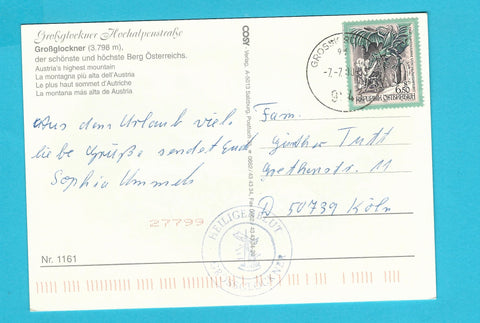 Großglockner Hochalpenstraße
Großglockner (3.798 m),
der schönste und höchste Berg Österreichs.
Austria's highest mountain
La montagna più alta dell'Austria
Le plus haut sommet d'Autriche
La montana más alta de Austria
Aus dem Urlaub viele
liebe Grüße sendet Euch
Sophia
27799
Nr. 1161
COSY Verlag, A-5013 Salzburg, Postfach
6.50
REPUBLIK ÖSTERREICH
Fam.
Günther Tutt
Grethenstr. 11
D 50739 Köln
HEILIGENBLUT
GROSSGLOCKNER